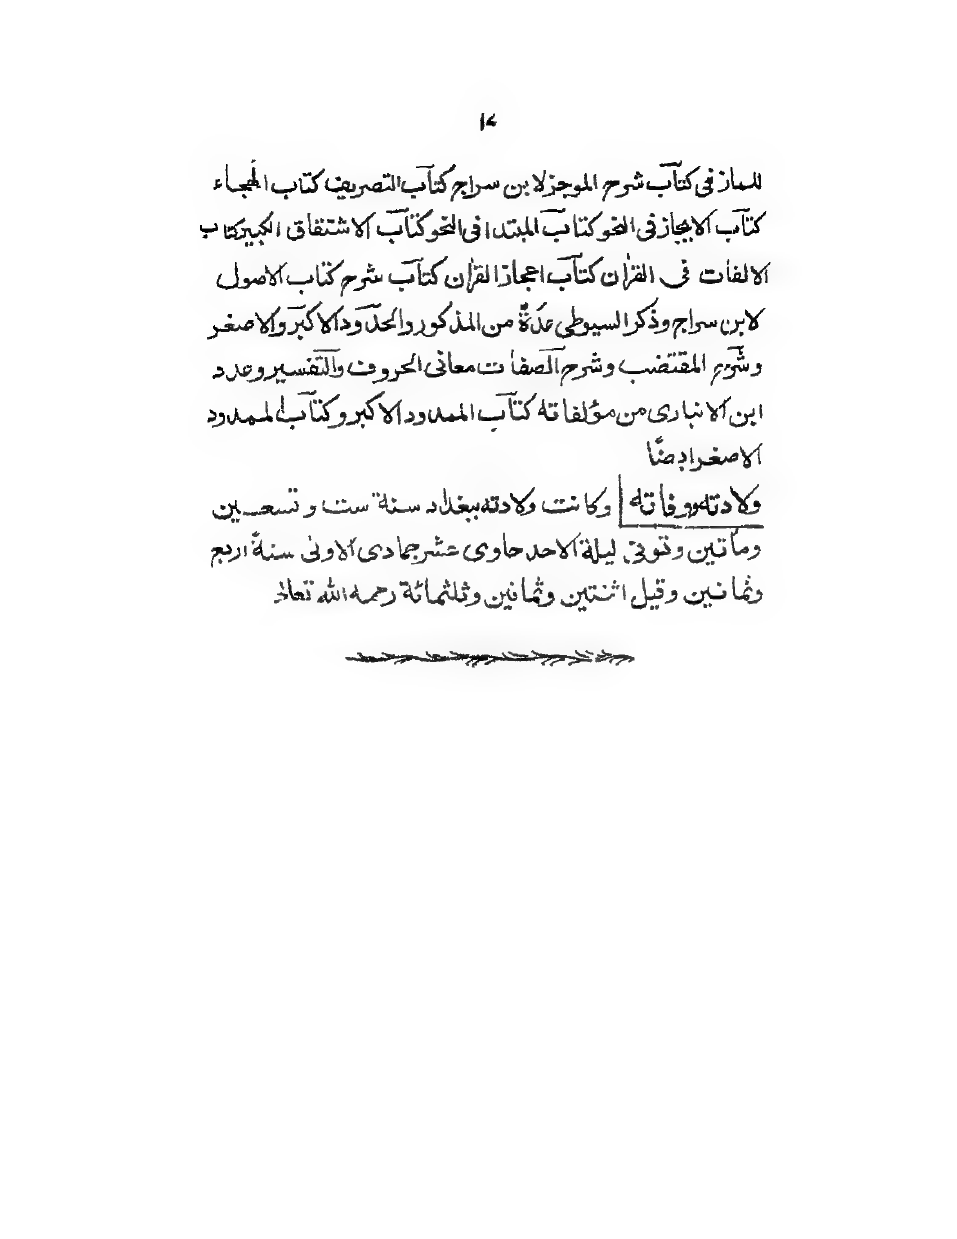 ١٢
للماز فى كتاب شرح الموجز لابن سراج كتاب التصريف كتاب الهجاء
كتاب الايجاز فى النحو كتاب المبتدا فى النحو كتاب الاشتقاق الكبير كتاب
الالفات فى القران كتاب اعجاز القران كتاب شرح كتاب الاصول
لابن سراج وذكر السيوطى عدة من المذكور والحدود الاكبر والاصغر
وشرح المقتضب وشرح الصفات معانى الحروف والتفسير وعدد
ابن الانبارى من مؤلفاته كتاب الممدود الاكبر وكتاب الممدود
الاصغر ايضًا
ولادته ووفاته وكانت ولادته ببغداد سنة ست وتسعين
ومأتين وتوفى ليلة الاحد حاوى عشر جمادى الاولى سنة اربع
وثمانين وقيل اثنتين وثمانين وثلثمائة رحمه الله تعالى